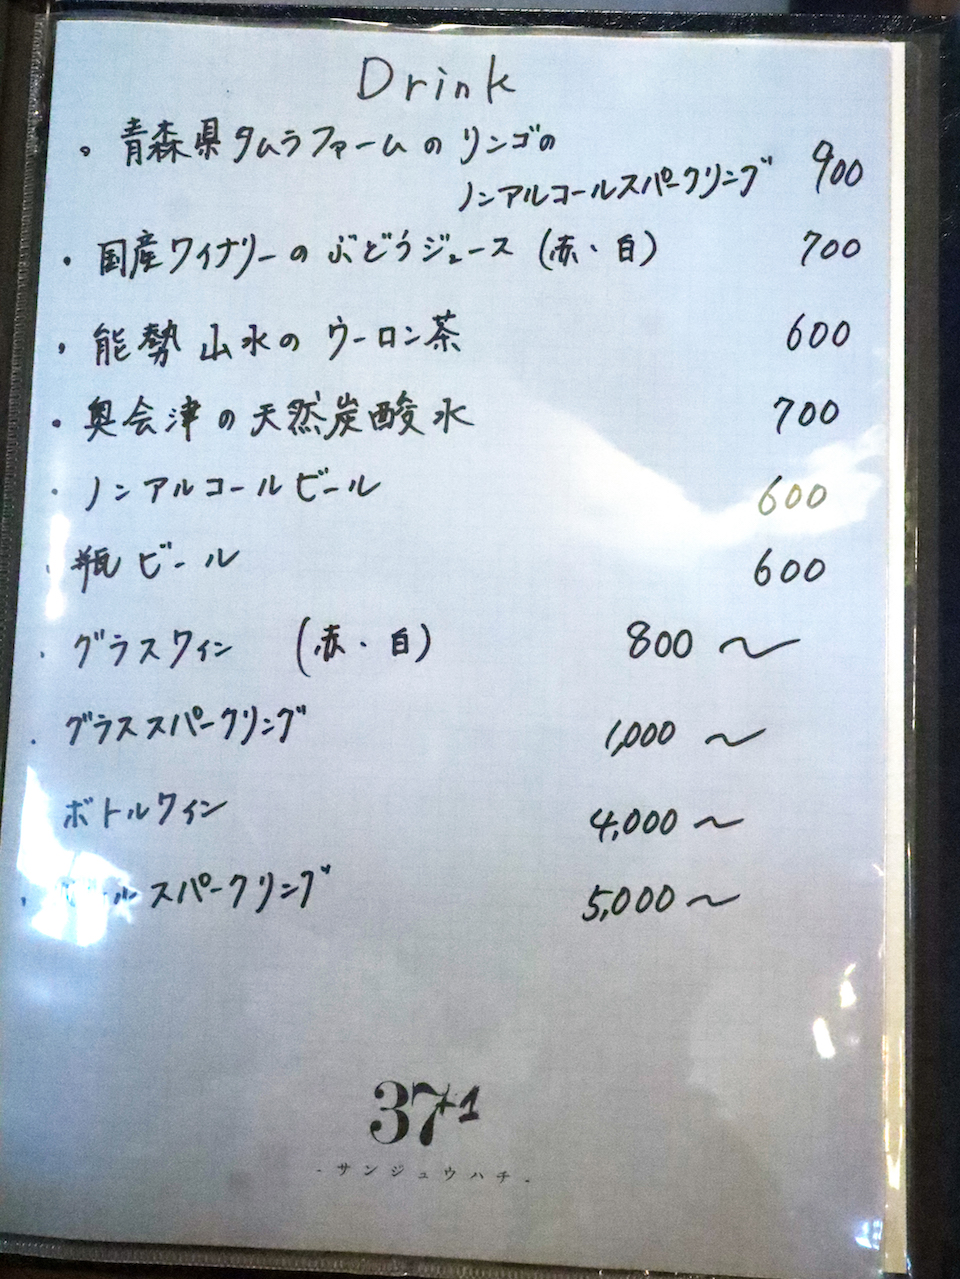 Drink
・青森県タムラファームのリンゴの
ノンアルコールスパークリング 900
・国産ワイナリーのぶどうジュース (赤・白) 700
・能勢 山水の ウーロン茶 600
・奥会津の天然炭酸水 700
・ノンアルコールビール 600
・瓶ビール 600
・グラスワイン (赤・白) 800 〜
・グラススパークリング 1,000 〜
ボトルワイン 4,000 〜
・ルスパークリング 5,000 〜
37+1
- サンジュウハチ -